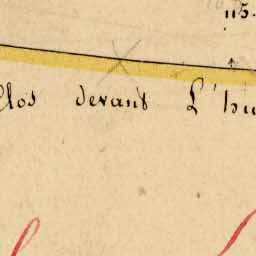 115.
Clos devant L'hu